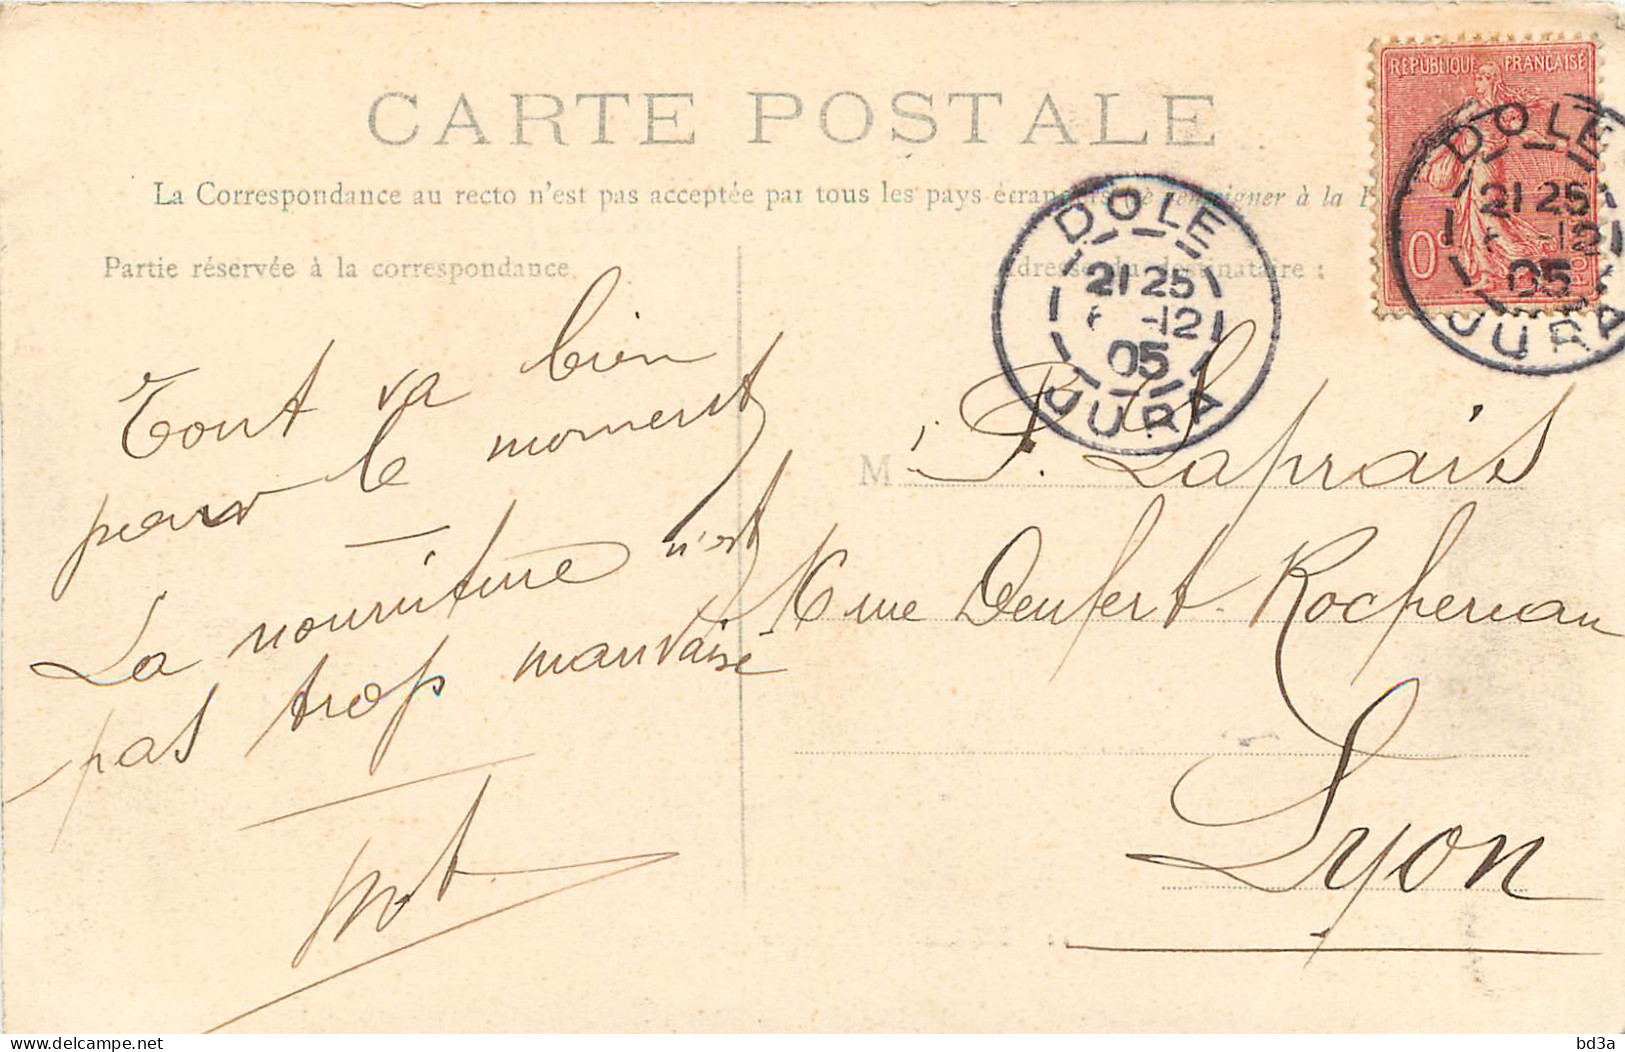 CARTE POSTALE
REPUBLIQUE FRANÇAISE
La Correspondance au recto n'est pas acceptée par tous les pays étrangers renseigner à la
Partie réservée à la correspondance
Adresse du destinataire :
DOLE
21 25
-12
05
JURA
DOLE
21 25
-12
05
JURA
Tout va bien
pour le moment
La nourriture n'est
pas trop mauvaise
M P. Laprais
rue Denfert-Rochereau
Lyon
delcampe.net
bd3a